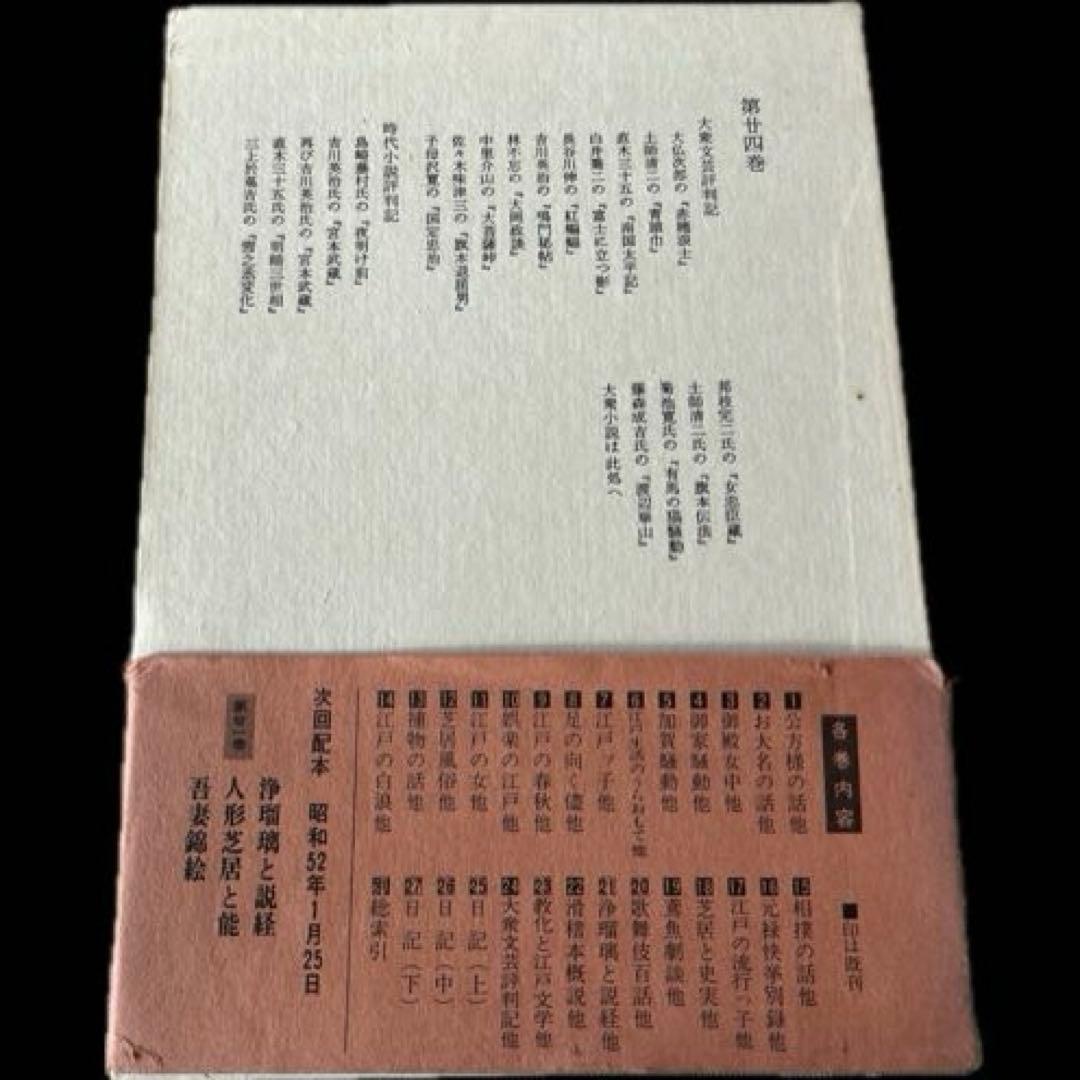 第廿四巻
大衆文芸評判記
大仏次郎の『赤穂浪士』
土師清二の『青頭巾』
直木三十五の『南国太平記』
白井喬二の『富士に立つ影』
長谷川伸の『紅蝙蝠』
吉川英治の『鳴門秘帖』
林不忘の『大岡政談』
中里介山の『大菩薩峠』
佐々木味津三の『旗本退屈男』
子母沢寛の『国定忠治』
時代小説評判記
島崎藤村氏の『夜明け前』
吉川英治氏の『宮本武蔵』
再び吉川英治氏の『宮本武蔵』
直木三十五氏の『明暦三世相』
三上於菟吉氏の『雪之丞変化』
邦枝完二氏の『女忠臣蔵』
土師清二氏の『旗本伝法』
菊池寛氏の『有馬の猫騒動』
藤森成吉氏の『渡辺華山』
大衆小説は此処へ
各巻内容
■印は既刊
1公方様の話他
2お大名の話他
3御殿女中他
4御家騒動他
5加賀騒動他
6江戸生活のうらおもて他
7江戸ッ子他
8足の向く儘他
9江戸の春秋他
10娯楽の江戸他
11江戸の女他
12芝居風俗他
13捕物の話他
14江戸の白浪他
15相撲の話他
16元禄快挙別録他
17江戸の流行っ子他
18芝居と史実他
19鳶魚劇談他
20歌舞伎百話他
21浄瑠璃と説経他
22滑稽本概説他
23教化と江戸文学他
24大衆文芸評判記他
25日記(上)
26日記(中)
27日記(下)
別総索引
次回配本 昭和52年1月25日
第廿一巻
浄瑠璃と説経
人形芝居と能
吾妻錦絵